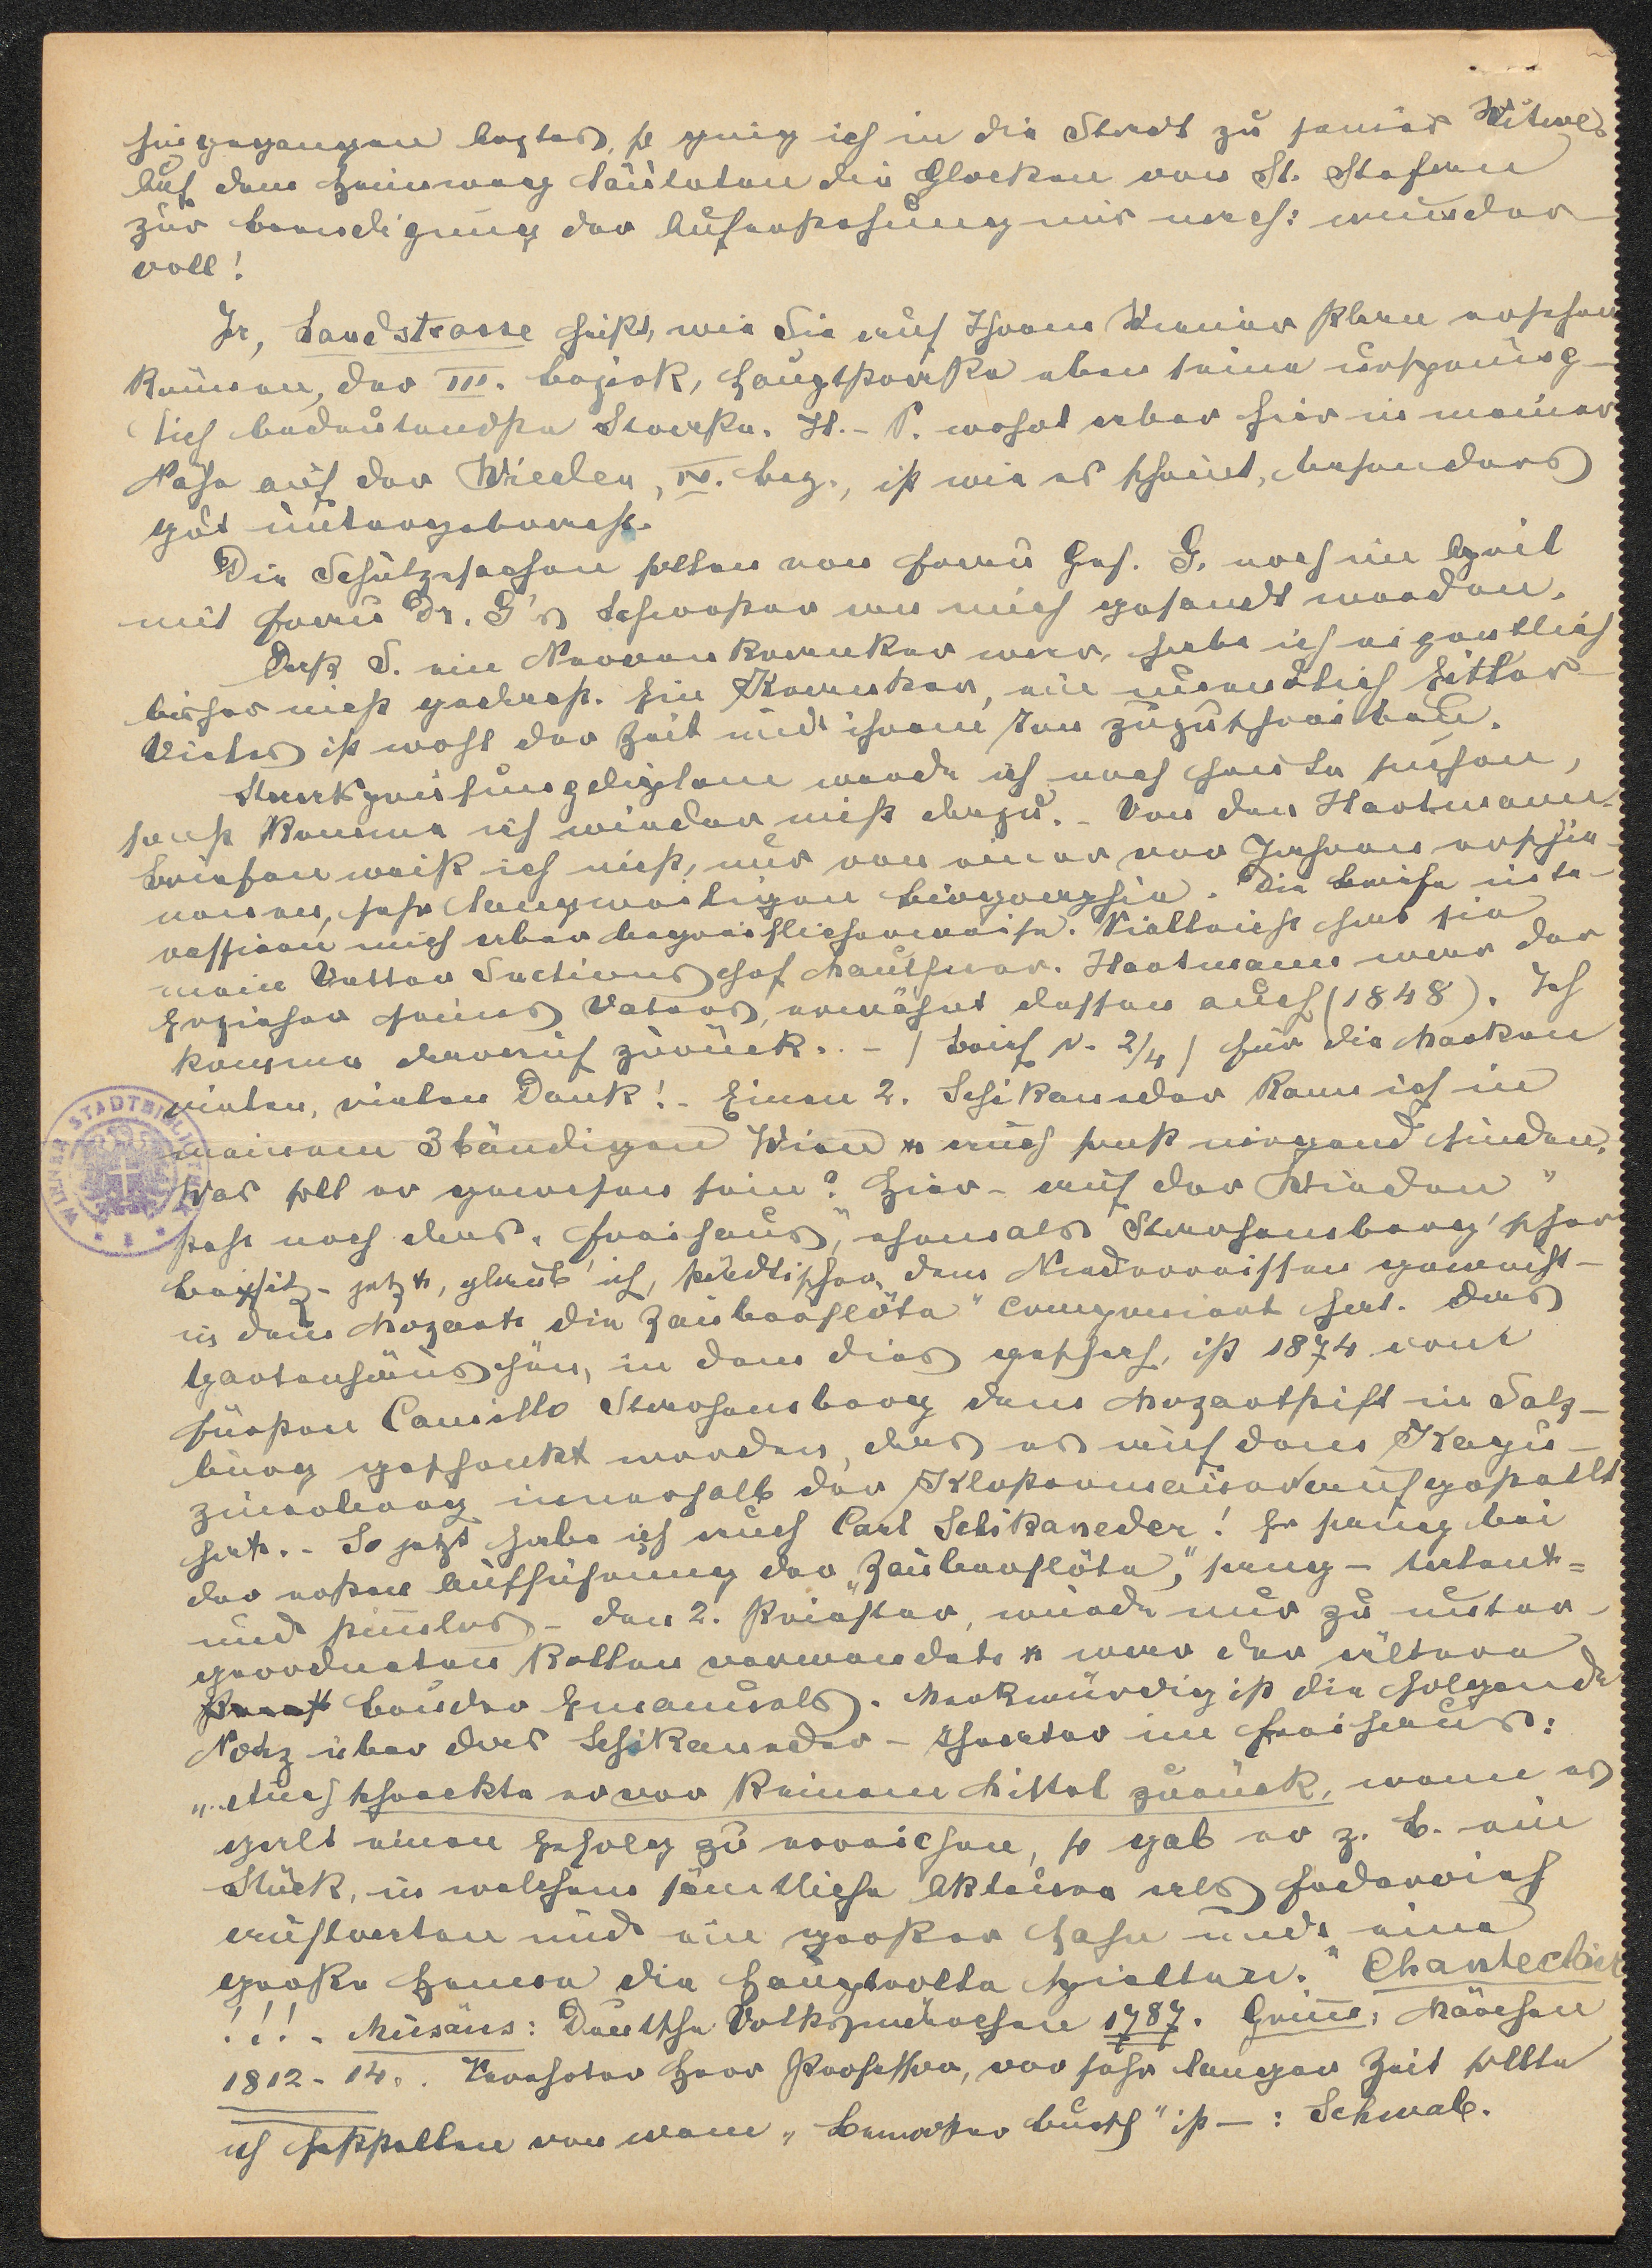 hingegangen letzter, so ging ich in die Stadt zu seiner Witwe.
Auf dem Heimweg läuteten die Glocken von St. Stefan
zur Beendigung der Auferstehung mir nach: wunder-
voll!
Ja, Landstrasse heißt, wie Sie auf Ihrem Wiener Plan ersehen
können, der III. Bezirk, Hauptstraße eben seine ursprüng-
lich bedeutendste Straße. H.-P. wohnt aber hier in meiner
Nähe auf der Wieden, IV. Bez., ist wie es scheint, besonders
gut untergebracht.
Die Schützsachen sollen von Frau Geh. G. noch im April
mit Frau Dr. G's Schwester an mich gesandt werden.
Daß S. ein Nervenkranker war, habe ich eigentlich
bisher nicht gedacht. Ein Kranker, ein unendlich Eitler
Vieles ist wohl der Zeit und ihrem Ton zuzuschreiben.
Staatsprüfungsdiplom werde ich noch heute suchen,
sonst komme ich wieder nicht dazu. - Von den Hartmann-
briefen weiß ich nichts, nur von einer vor Jahren erschie-
nenen, sehr langweiligen Biographie. Die Briefe inte-
ressieren mich aber begreiflicherweise. Vielleicht hat sie
mein Vetter Sectionschef Mauthner. Hartmann war der
Erzieher seines Vaters, erwähnt dessen auch (1848). Ich
komme darauf zurück. - / Brief v. 2/4 / Für die Marken
vielen, vielen Dank! - Einen 2. Schikaneder kann ich in
meinem 3bändigen Wien u auch sonst nirgend finden.
Was soll er gewesen sein? Hier - auf der Wieden"
steht noch das „Freihaus", ehemals Starhembergscher
Besitz - jetzt, glaub' ich, städtischer, dem Niederreissen geweiht -
in dem Mozart die Zauberflöte" componiert hat. Das
Gartenhäuschen, in dem dies geschah, ist 1874 vom
Fürsten Camillo Starhemberg dem Mozartstift in Salz-
burg geschenkt worden, das es auf dem Kapu-
zinerberg innerhalb der Klostermauer aufgestellt
hat. - So jetzt habe ich auch Carl Schikaneder! Er sang bei
der ersten Aufführung der „Zauberflöte", sang - talent-
und stimmlos - den 2. Priester, wurde nur zu unter-
geordneten Rollen verwendet u war der ältere
Bruder Emanuels. Merkwürdig ist die folgende
Notiz über das Schikaneder-Theater im Freihaus:
„Auch schreckte er vor keinem Mittel zurück, wenn es
galt einen Erfolg zu erreichen, so gab er z. B. ein
Stück, in welchem sämtliche Akteure als Federvieh
auftraten und ein großer Hahn und eine
große Henne die Hauptrolle spielten." Chantecler
!!! - Musäus: Deutsche Volksmärchen 1787. Grimm, Märchen
1812-14. Verehrter Herr Professor, vor sehr langer Zeit sollte
ich feststellen von wem „ Bursch" ist - : Schwab.
WIENER STADTBIBLIOTHEK